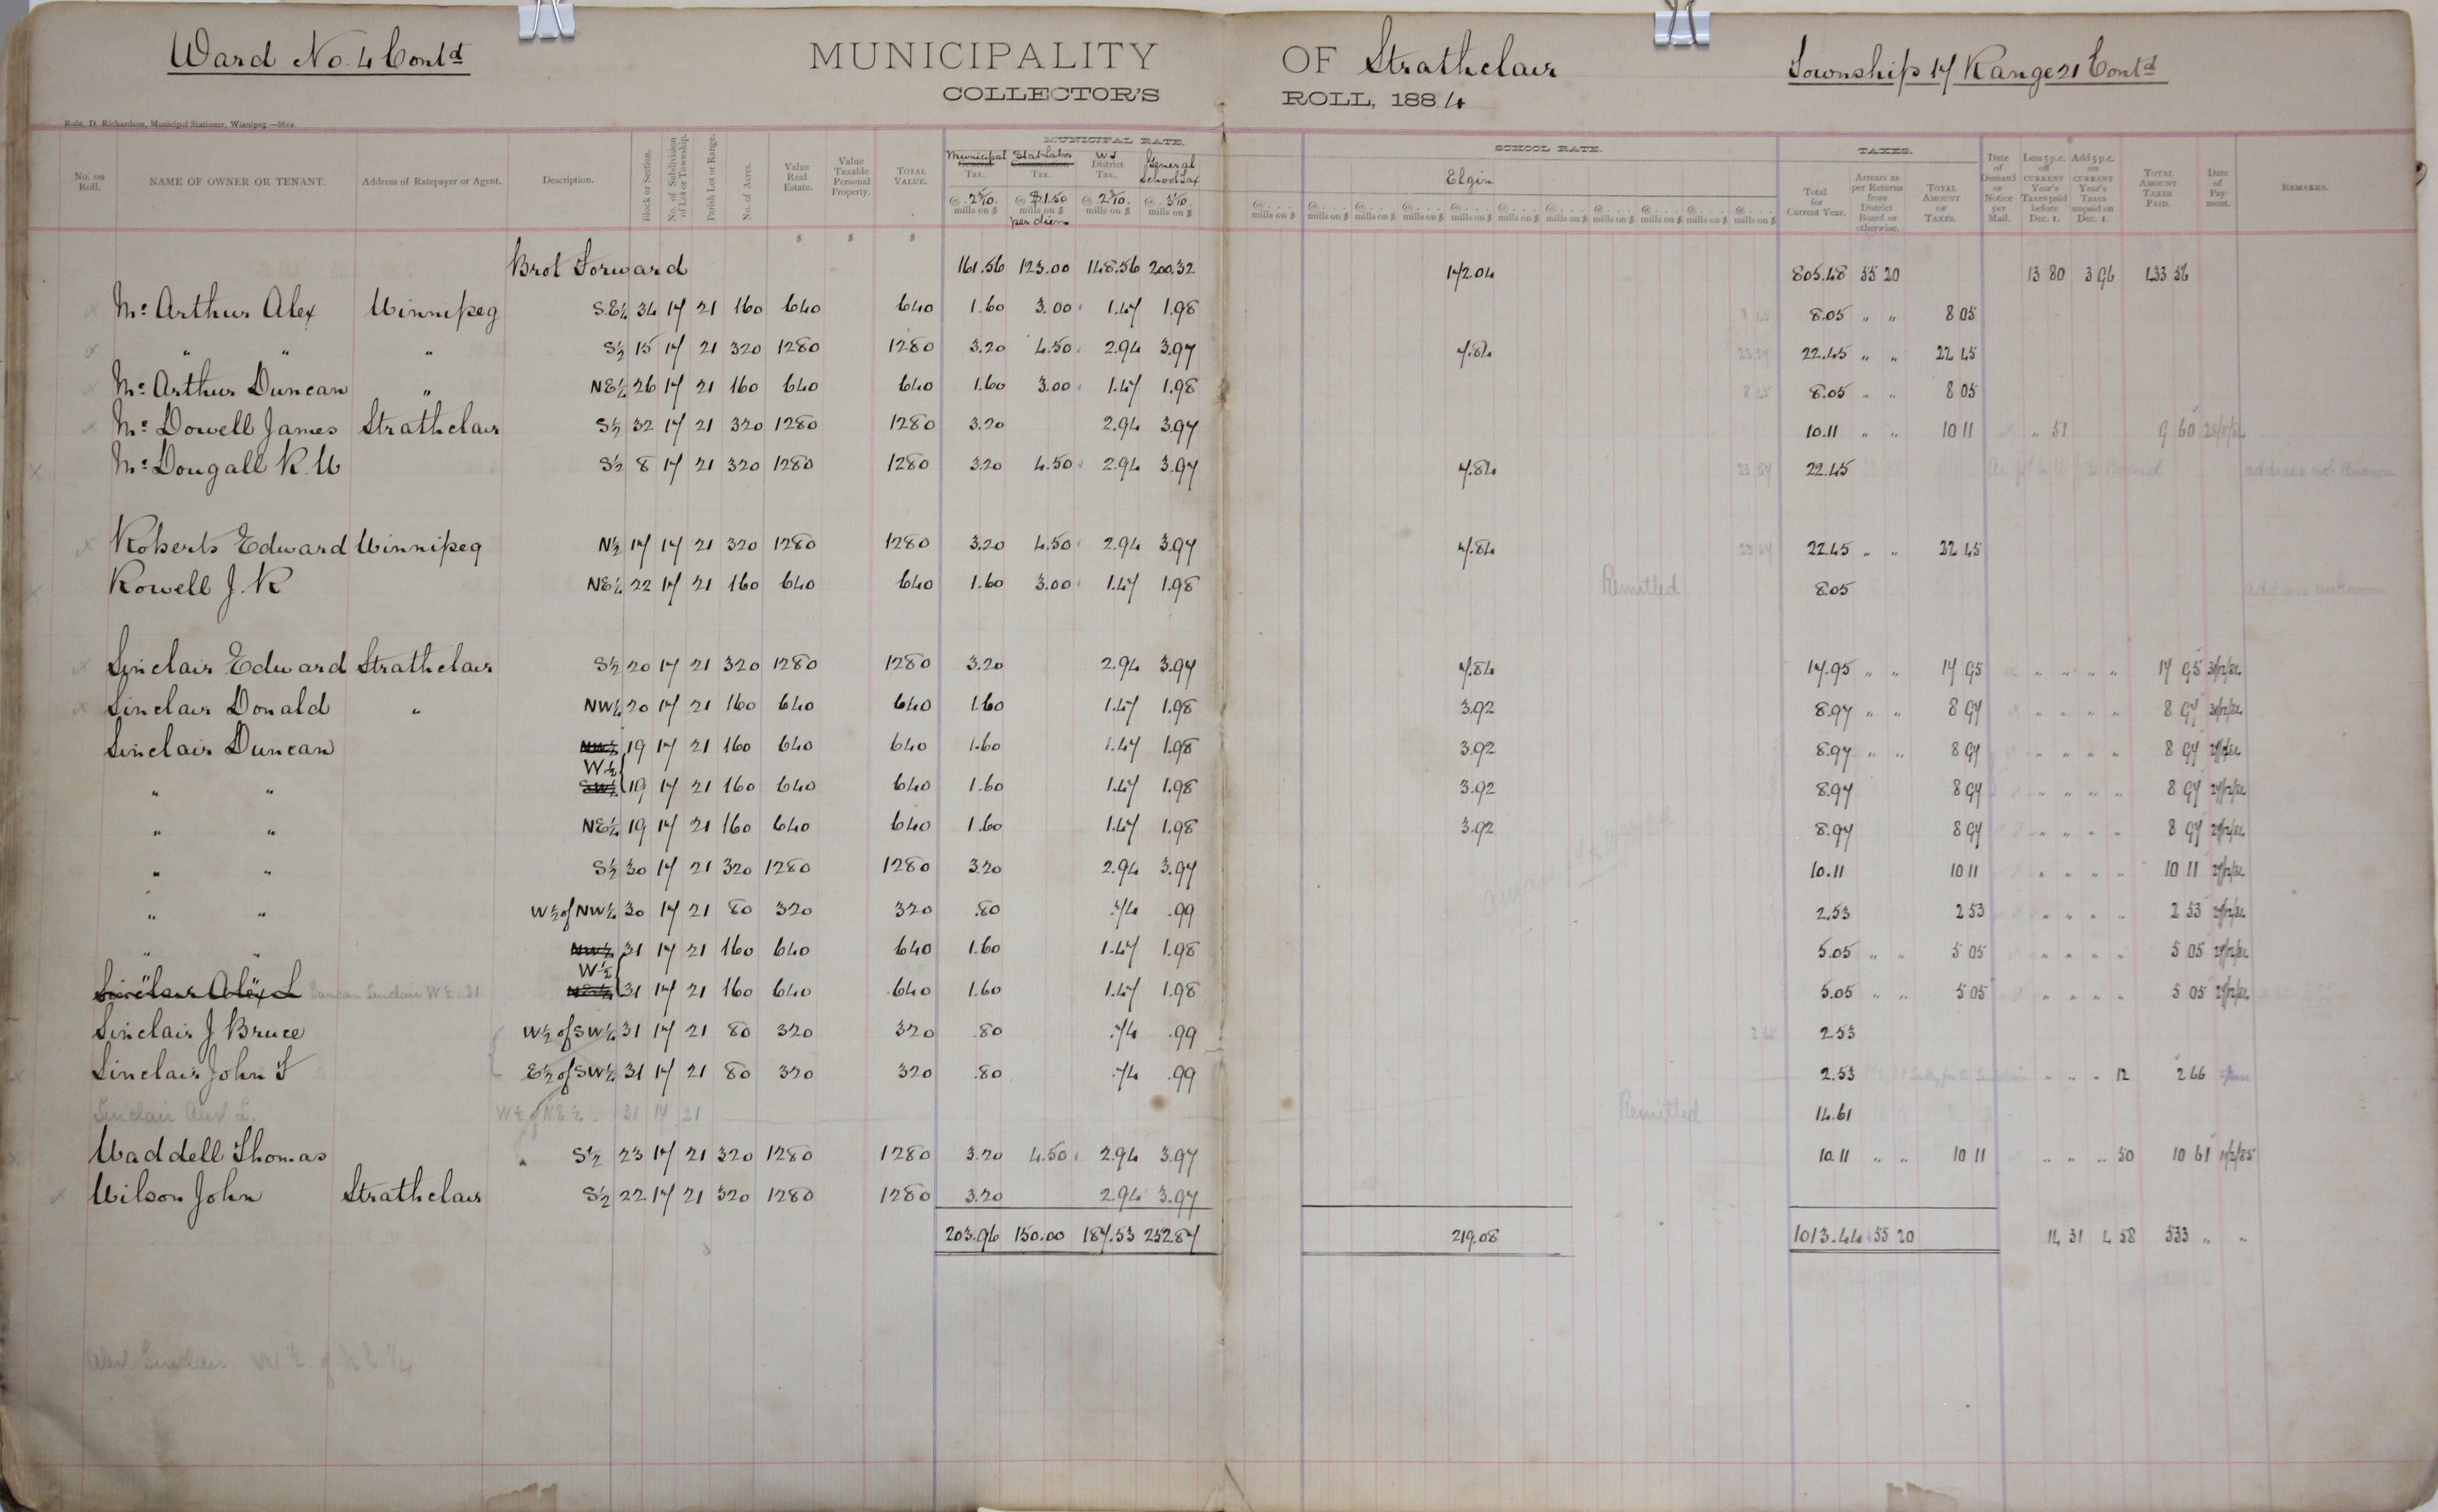 Ward No. 4 Contd MUNICIPALITY OF Strathclair Township 17 Range 21 Contd
COLLECTOR'S ROLL, 1884
Robt. D. Richardson, Municipal Stationer, Winnipeg.
MUNICIPAL RATE. SCHOOL RATE. TAXES.
No. on Roll. NAME OF OWNER OR TENANT. Address of Ratepayer or Agent. Description. Block or Section. No. of Subdivision of Lot or Township. Parish Lot or Range. No. of Acres. Value Real Estate. Value Taxable Personal Property. TOTAL VALUE. Municipal Tax. Stat Labor Tax. W J District Tax. General School Tax Elgin Total for Current Year. Arrears as per Returns from District Board or otherwise. TOTAL AMOUNT OF TAXES. Date of Demand or Notice per Mail. Less 5 p.c. off CURRENT Year's Taxes paid before Dec. 1. Add 5 p.c. on CURRENT Year's Taxes unpaid on Dec. 1. TOTAL AMOUNT TAXES PAID. Date of Payment. REMARKS.
@ 2 5/10 mills on $ @ $1.50 mills on $ per diem @ 2 3/10 mills on $ @ 3 1/10 mills on $
Brot Forward 161.56 123.00 148.56 200.32 172.04 805.48 55 20 13 80 3 96 433 56
Mc Arthur Alex Winnipeg S.E¼ 34 17 21 160 640 640 1.60 3.00 1.47 1.98 8.05 " " 8 05
" " " S½ 15 17 21 320 1280 1280 3.20 4.50 2.94 3.97 7.84 22.45 " " 22 45
Mc Arthur Duncan " NE¼ 26 17 21 160 640 640 1.60 3.00 1.47 1.98 8.05 " " 8 05
Mc Dowell James Strathclair S½ 32 17 21 320 1280 1280 3.20 2.94 3.97 10.11 " " 10 11 " 51 9 60
Mc Dougall R. W S½ 8 17 21 320 1280 1280 3.20 4.50 2.94 3.97 7.84 23 54 22.45 address not known
Roberts Edward Winnipeg N½ 17 17 21 320 1280 1280 3.20 4.50 2.94 3.97 7.84 22.45 " " 22 45
Rowell J. R NE¼ 22 17 21 160 640 640 1.60 3.00 1.47 1.98 Remitted 8.05 address unknown
Sinclair Edward Strathclair S½ 20 17 21 320 1280 1280 3.20 2.94 3.97 7.84 17.95 " " 17 95 " " " " 17 95 31/12/84
Sinclair Donald " NW¼ 20 17 21 160 640 640 1.60 1.47 1.98 3.92 8.97 " " 8 97 " " " " 8 97 31/12/84
Sinclair Duncan NW¼ 19 17 21 160 640 640 1.60 1.47 1.98 3.92 8.97 " " 8 97 " " " " 8 97 29/12/84
W½
" " SW¼ 19 17 21 160 640 640 1.60 1.47 1.98 3.92 8.97 8 97 " " " " 8 97 29/12/84
" " NE¼ 19 17 21 160 640 640 1.60 1.47 1.98 3.92 8.97 8 97 " " " " 8 97 29/12/84
" " S½ 30 17 21 320 1280 1280 3.20 2.94 3.97 10.11 10 11 " " " " 10 11 29/12/84
" " W½ of NW¼ 30 17 21 80 320 320 .80 .74 .99 2.53 2 53 " " " " 2 53 29/12/84
" " NW¼ 31 17 21 160 640 640 1.60 1.47 1.98 5.05 " " 5 05 " " " " 5 05 29/12/84
W½
Sinclair Alex L Duncan Sinclair W½ 31 31 17 21 160 640 640 1.60 1.47 1.98 5.05 " " 5 05 " " " " 5 05 29/12/84
Sinclair J Bruce W½ of SW¼ 31 17 21 80 320 320 .80 .74 .99 2.53
Sinclair John F E½ of SW¼ 31 17 21 80 320 320 .80 .74 .99 2.53 " " " 12 2 66
Sinclair Alex L. W½ of N.E.¼ 31 17 21 Remitted 14.61
Waddell Thomas S½ 23 17 21 320 1280 1280 3.20 4.50 2.94 3.97 10.11 " " 10 11 " " " 50 10 61 11/2/85
Wilson John Strathclair S½ 22 17 21 320 1280 1280 3.20 2.94 3.97
203.96 150.00 187.53 252.87 219.08 1013.44 55 20 14 31 4 58 533 " "
Alex Sinclair W½ of N E ¼